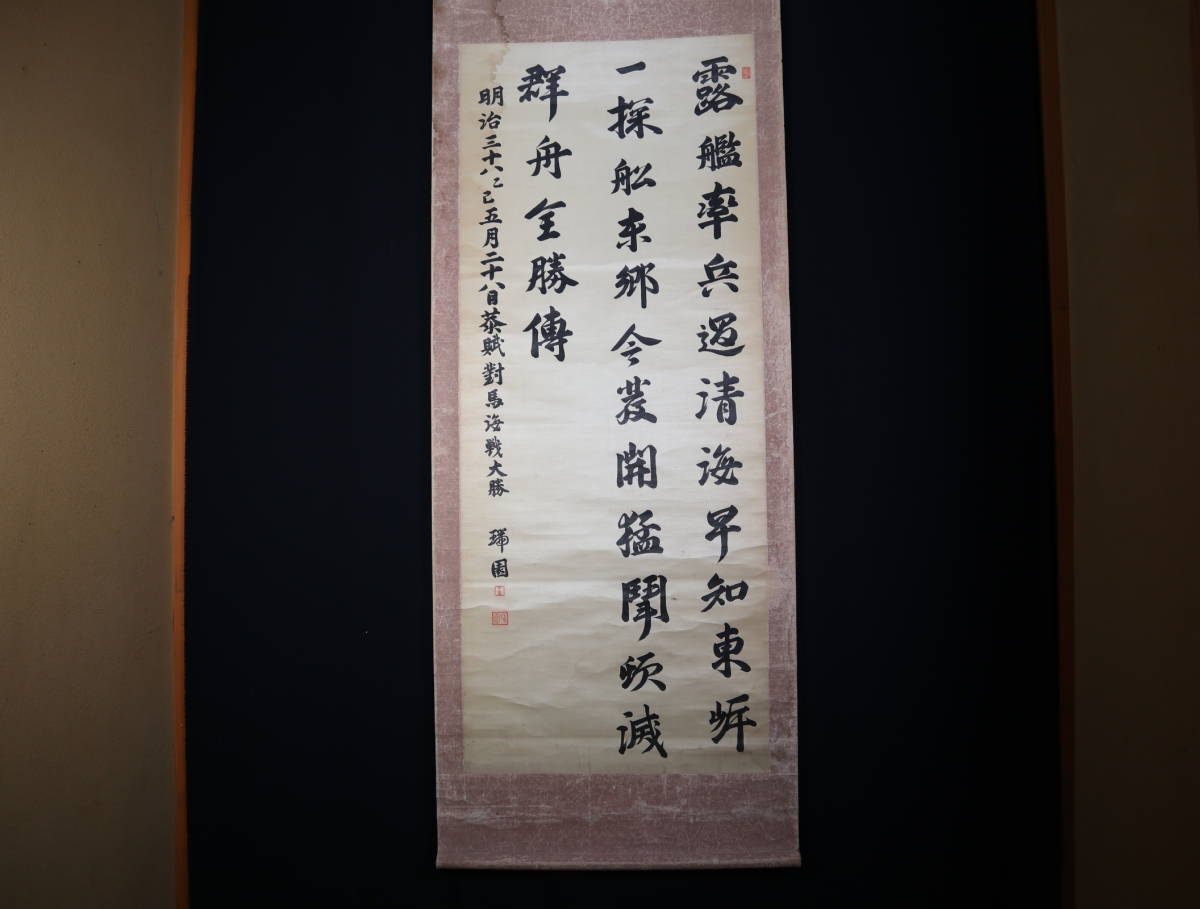 露艦率兵過清海早知東
一探船東郷今發開猛鬪頃滅
群舟全勝傳
明治三十八乙巳五月二十八日恭賦對馬海戰大勝 瑞園